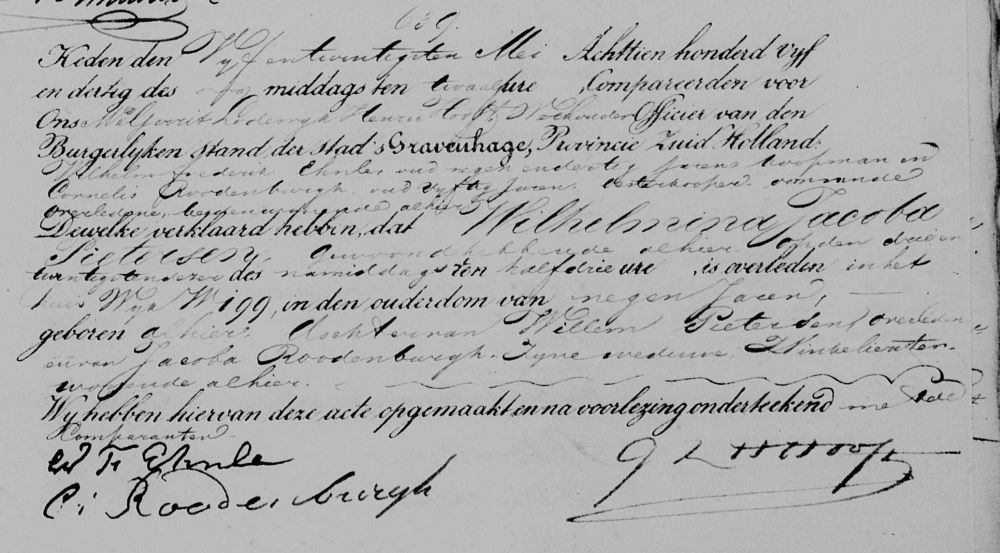 639.
Heden den Vyf en twintigsten Mei Achttien honderd vyf
en dertig des middags ten twaalf ure Compareerden voor
Ons Gerrit Lodewyk Hendrik Hooft Wethouder Officier van den
Burgerlyken stand der stad 's Gravenhage, Provincie Zuid Holland:
Wilhelm Frederik Ehnle, oud negen en dertig Jaren, koopman en
Cornelis Roodenburgh, oud vyftig Jaren,
overledene, alhier
Dewelke verklaard hebben, dat Wilhelmina Jacoba
Pietersen, gewoond hebbende alhier op den drie en
twintigsten dezer des namiddags ten half drie ure, is overleden in het
huis Wyk W 199, in den ouderdom van negen Jaren,
geboren alhier. dochter van Willem Pietersen, overleden
en van Jacoba Roodenburgh, Zyne weduwe, Winkelierster
wonende alhier.
Wy hebben hiervan deze acte opgemaakt en na voorlezing onderteekend met de
Comparanten
W F Ehnle
C: Roodenburgh
G L H Hooft